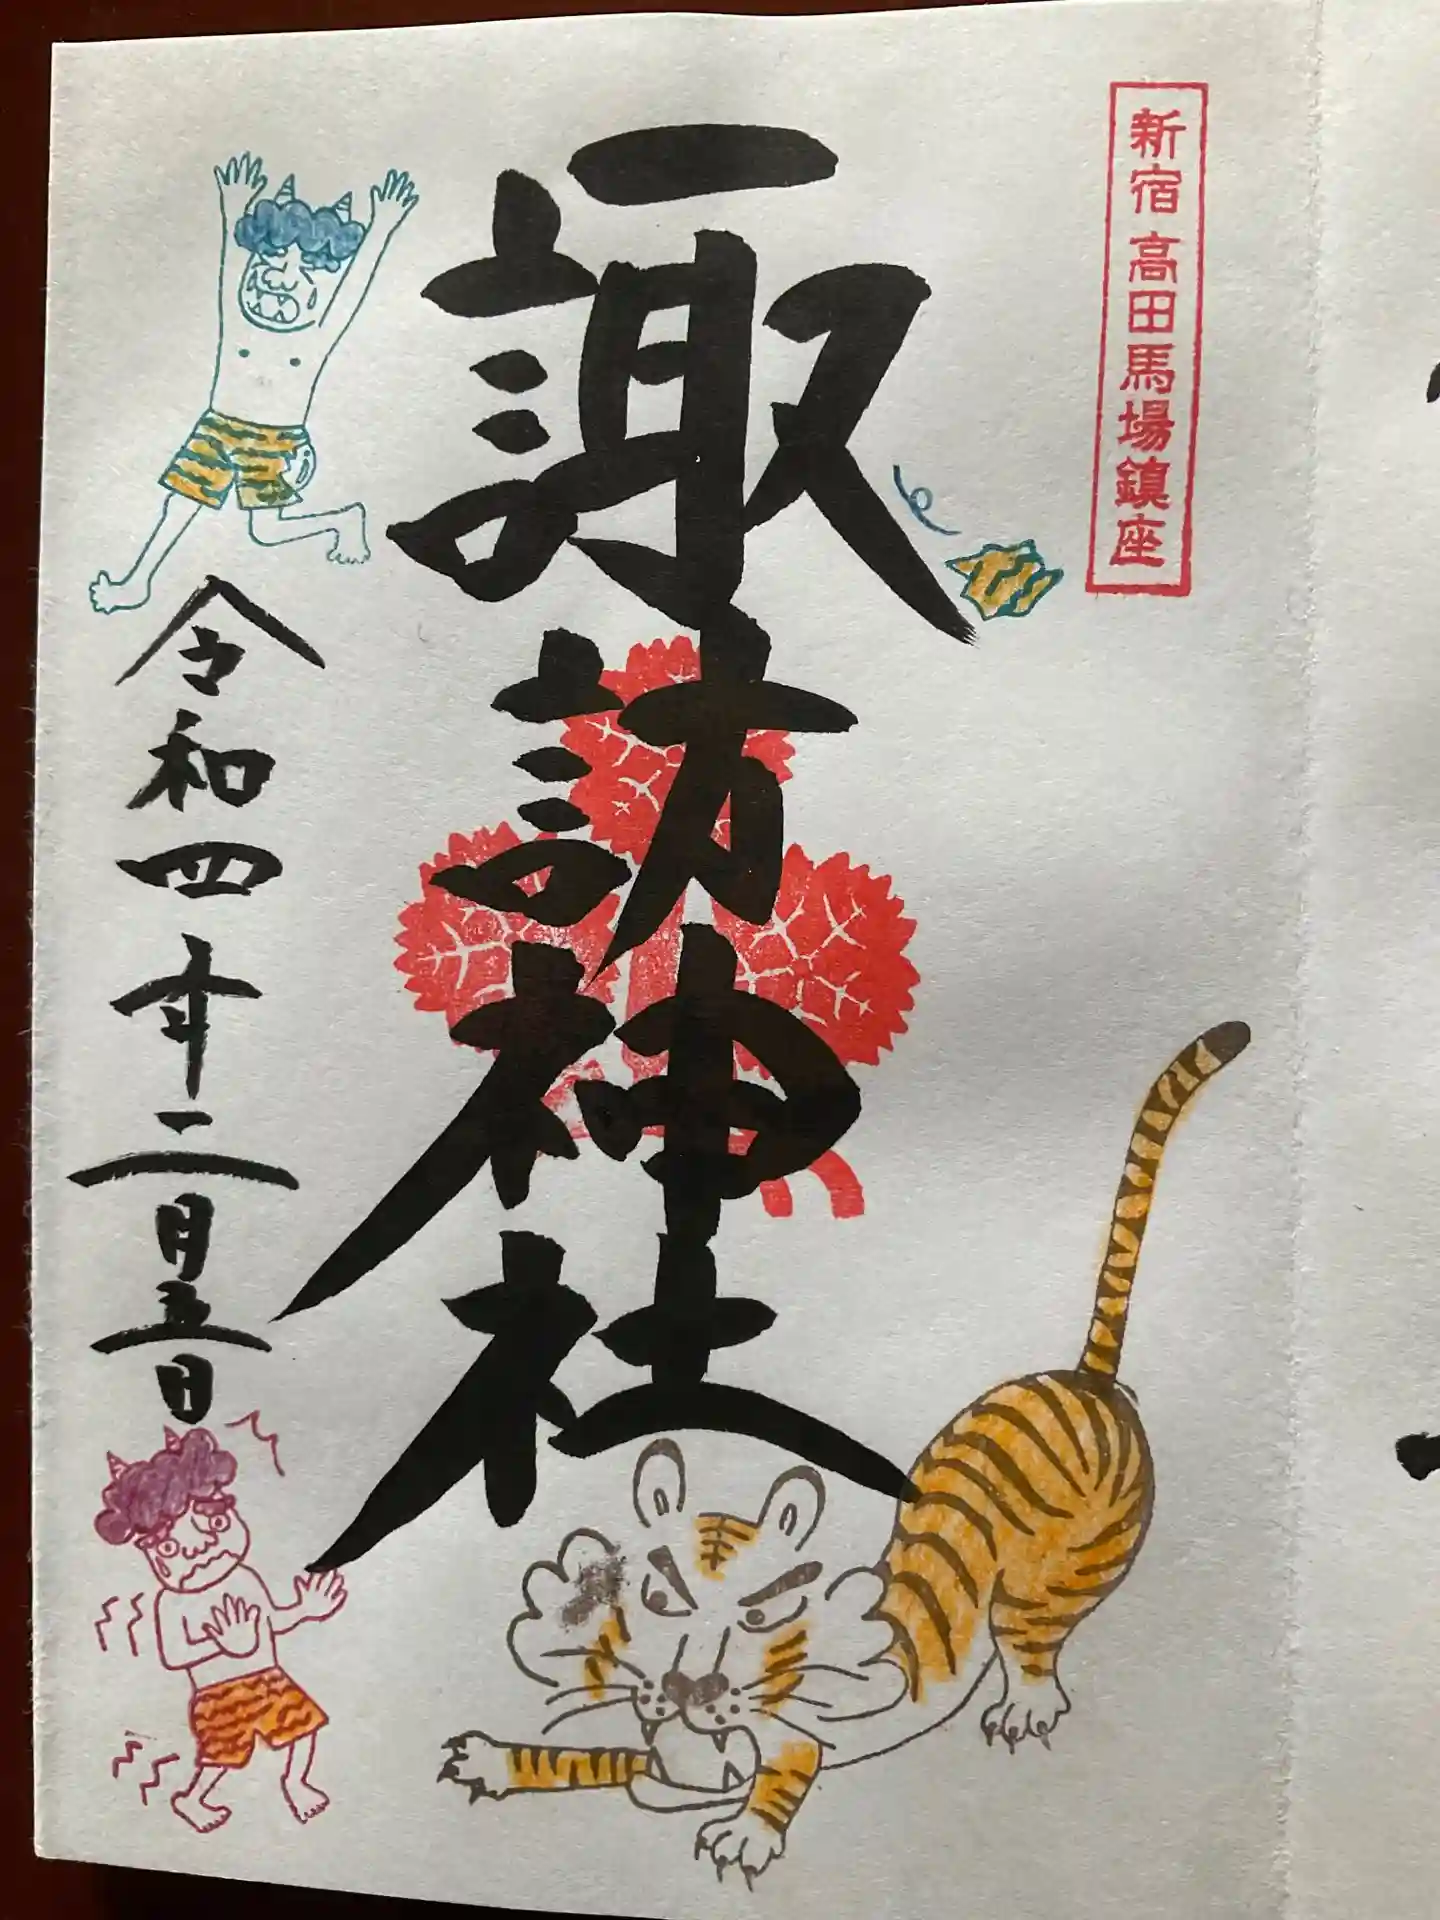 新宿 高田馬場鎮座
諏訪神社
令和四年二月五日